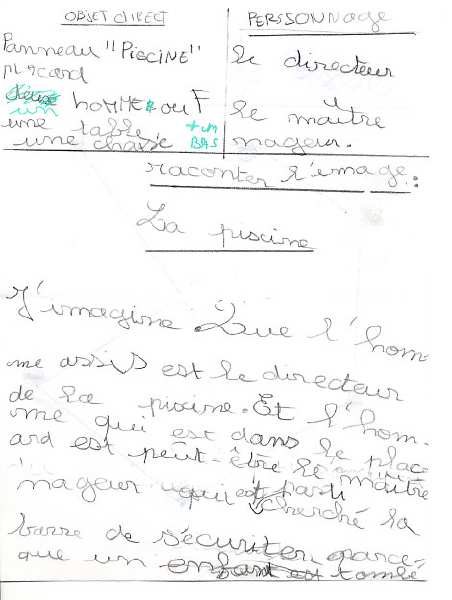 OBJET direct
Panneau "PISCINE"
placard
un HOMME ou F
une table
une chaise + un BAS
PERSSONNAGE
le directeur
le maître
nageur.
raconter l'image :
La piscine
J'imagine Que l'hom-
me assis est le directeur
de la piscine. Et l'hom-
me qui est dans le plac-
ard est peut-être le maître
nageur qui est parti
cherché la
barre de sécuriter parce-
que un enfant est tombé